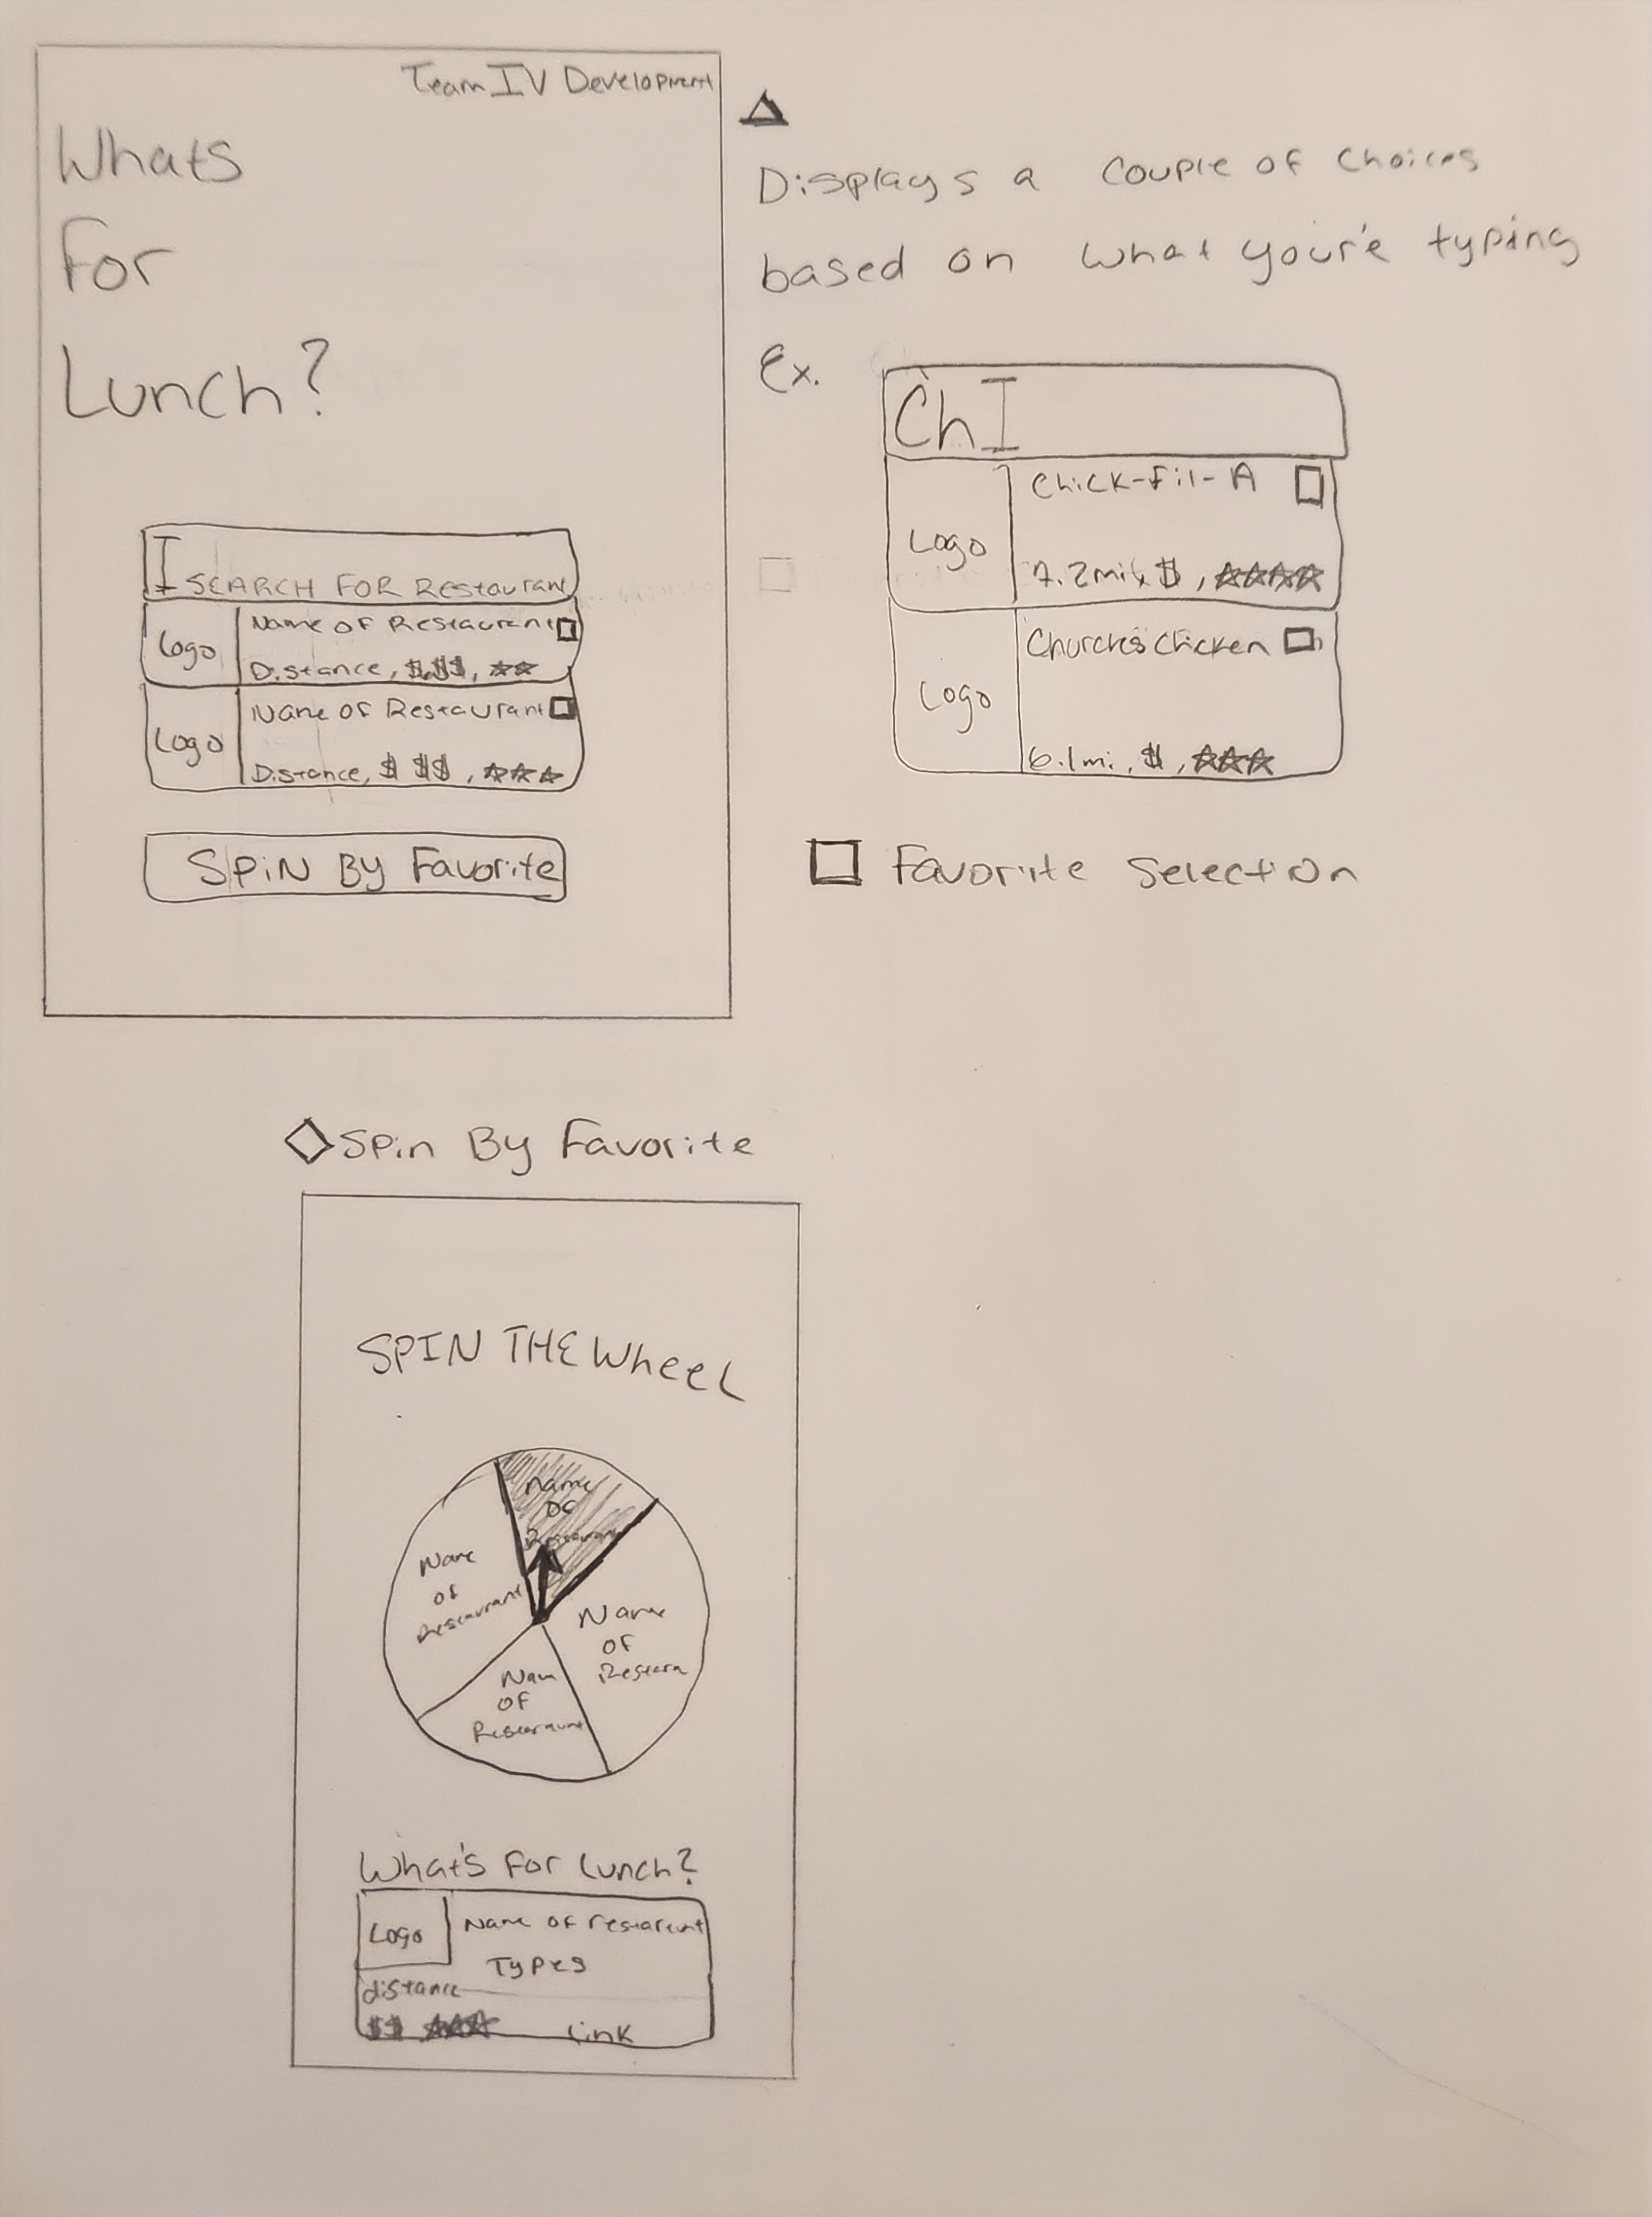 Team IV Development
Whats
For
Lunch?
I SEARCH FOR Restaurant
Logo
Name of Restaurant
Distance, $$$, ☆☆
Logo
Name of Restaurant
Distance, $ $$, ☆☆☆
SPiN By Favorite
Displays a couple of choices
based on what your'e typing
Ex.
ChI
Logo
Chick-fil-A
7.2mi, $, ☆☆☆☆
Logo
Church's Chicken
6.1mi, $, ☆☆☆
Favorite Selection
Spin By Favorite
SPIN THE WHeeL
Name
of
Restaurant
Name
of
Restaurant
Name
of
Restara
Nam
of
Restaraunt
What's for Lunch?
Logo
Name of restaraunt
Types
distance
$$ ☆☆☆
Link